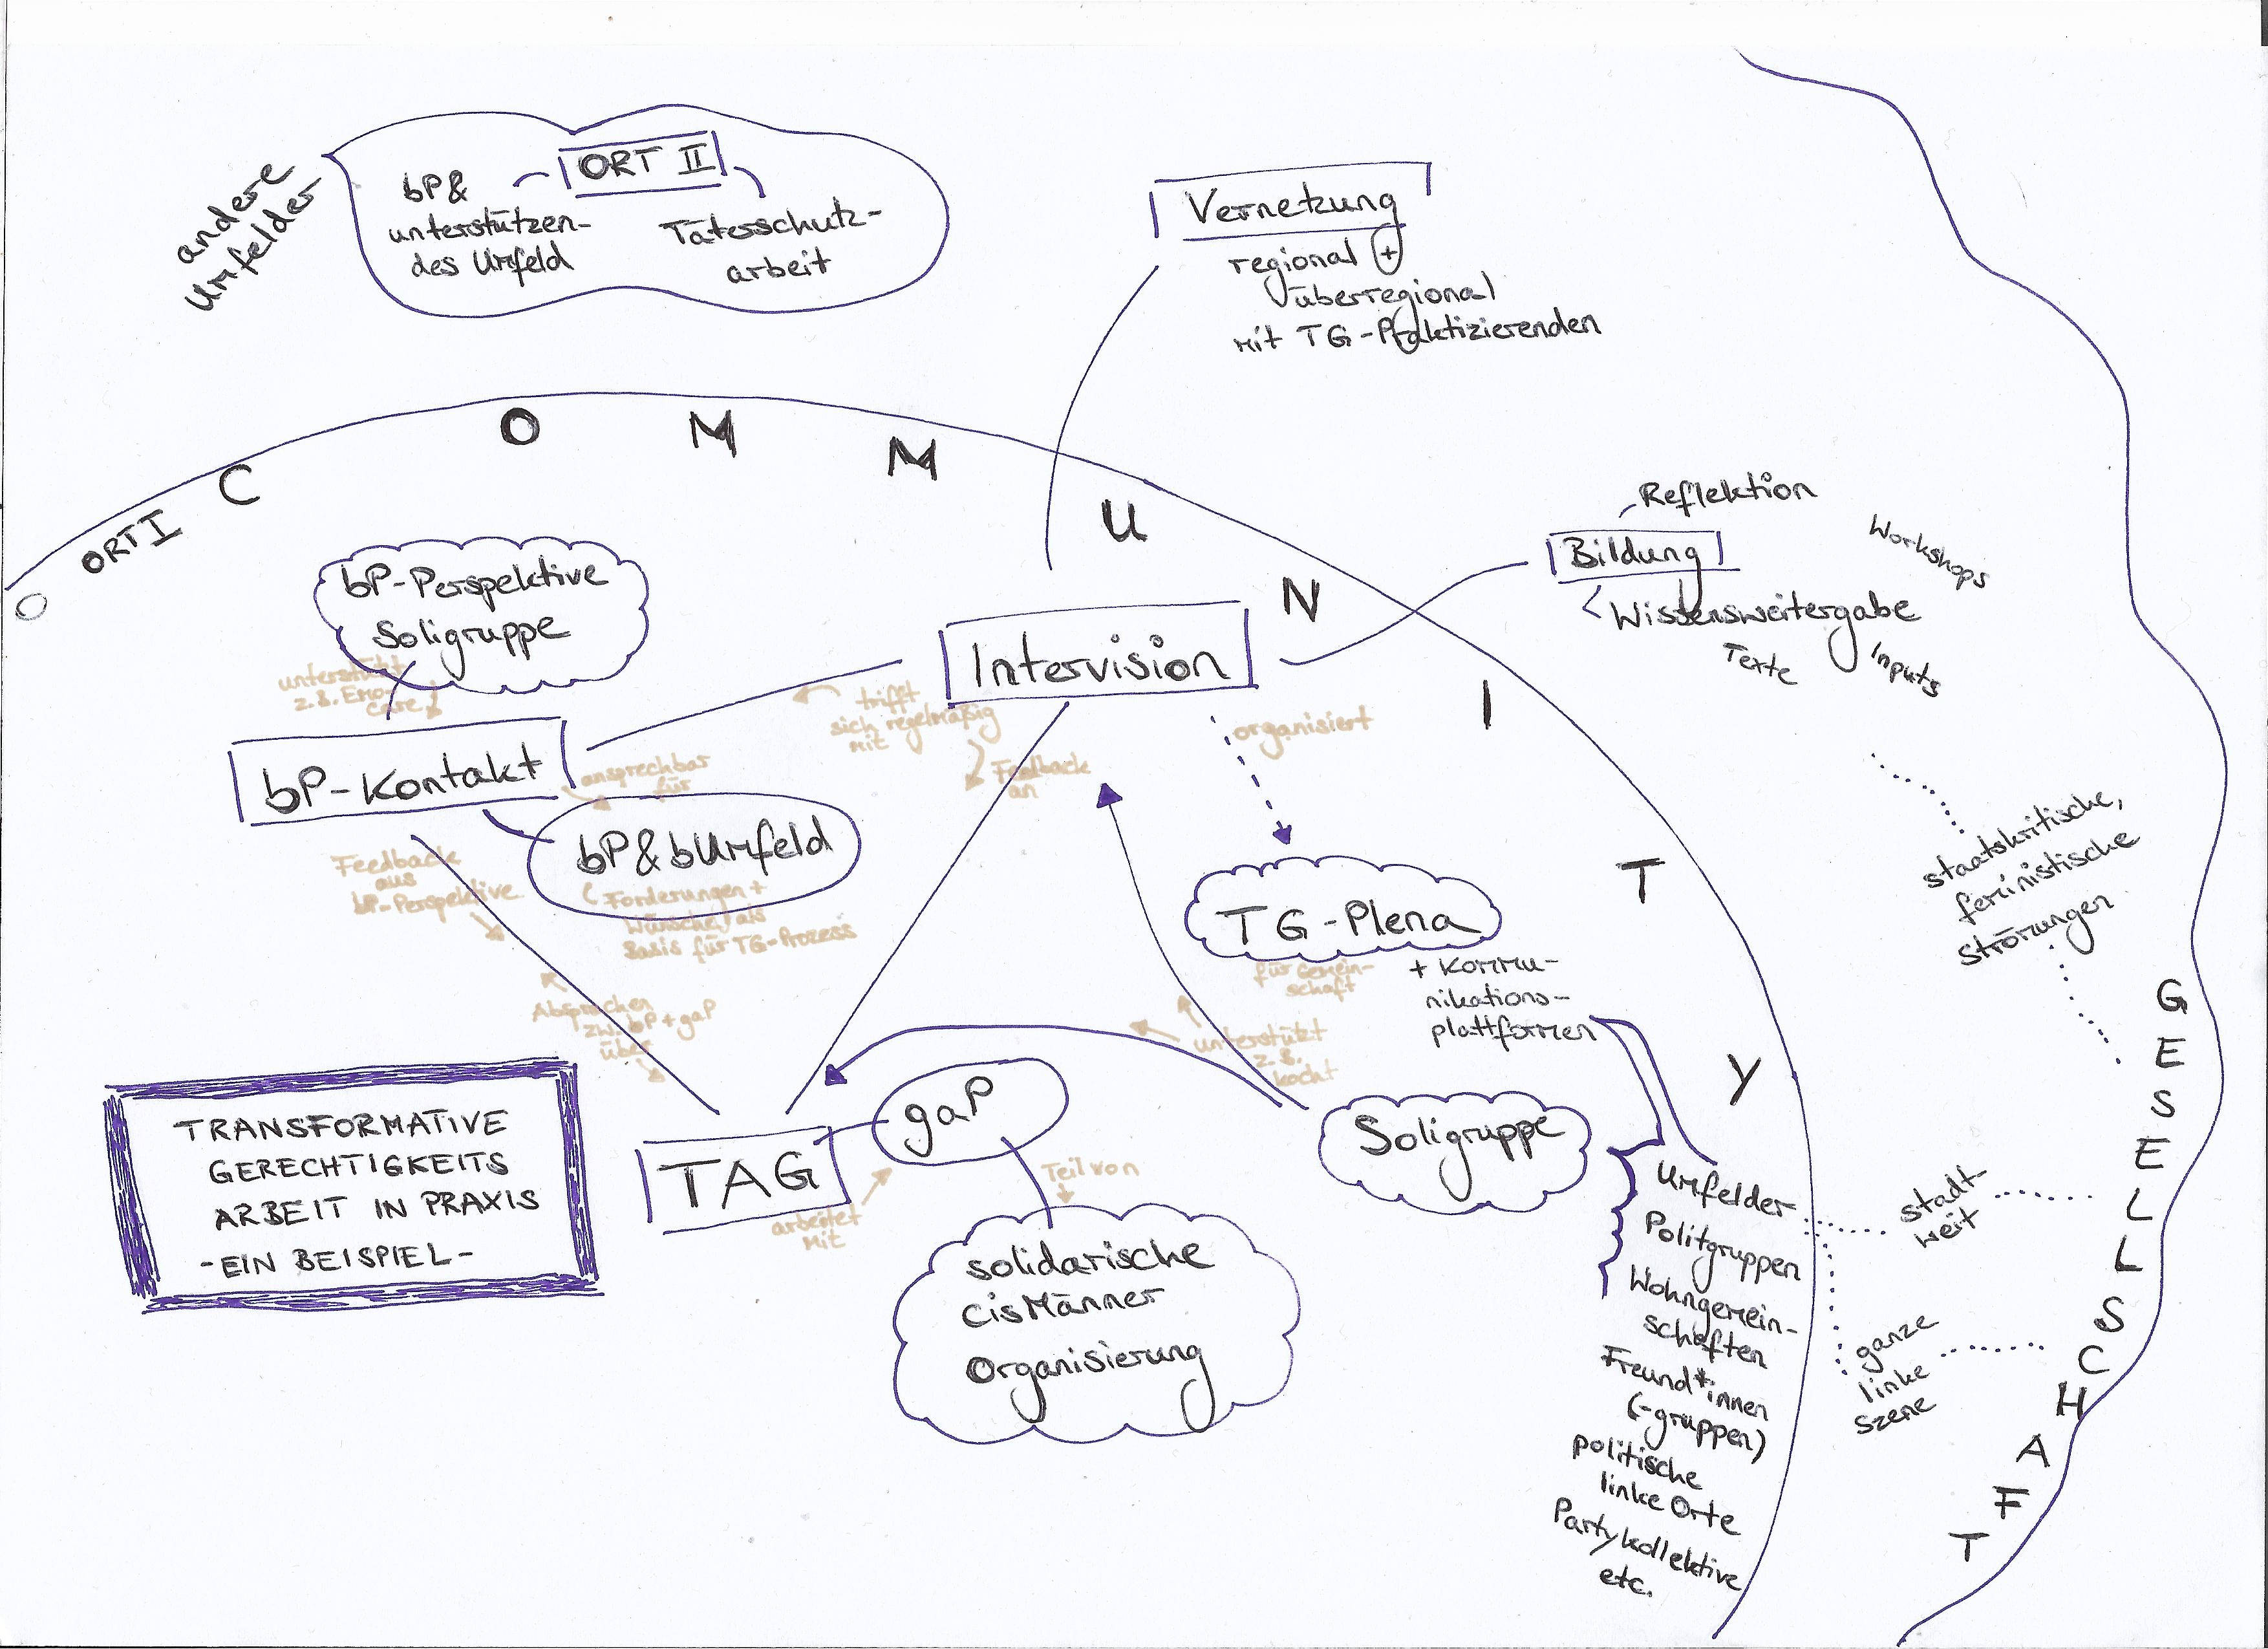 andere
Umfelder
ORT II
bP &
unterstützen-
des Umfeld
Täterschutz-
arbeit
Vernetzung
regional +
überregional
mit TG-Praktizierenden
ORT I
COMMUNITY
bP-Perspektive
Soligruppe
unterstützt
z.B. Emo-
care
Intervision
Reflektion
Bildung
Wissensweitergabe
Workshops
Texte
Inputs
trifft
sich regelmäßig
mit
Feedback
an
organisiert
bP-Kontakt
ansprechbar
für
bP & bUmfeld
(Forderungen +
Wünsche) als
Basis für TG-Prozess
Feedback
aus
bP-Perspektive
Absprachen
zw. bP + gaP
über
TG-Plena
für Gemein-
schaft
+ Kommu-
nikations-
plattformen
unterstützt
z.B.
kocht
staatskritische,
feministische
strömungen
GESELLSCHAFT
TRANSFORMATIVE
GERECHTIGKEITS
ARBEIT IN PRAXIS
-EIN BEISPIEL-
TAG
gaP
arbeitet
mit
Teil von
solidarische
CisMänner
Organisierung
Soligruppe
Umfelder
Politgruppen
Wohngemein-
schaften
Freund*innen
(-gruppen)
politische
linke Orte
Partykollektive
etc.
stadt-
weit
ganze
linke
Szene